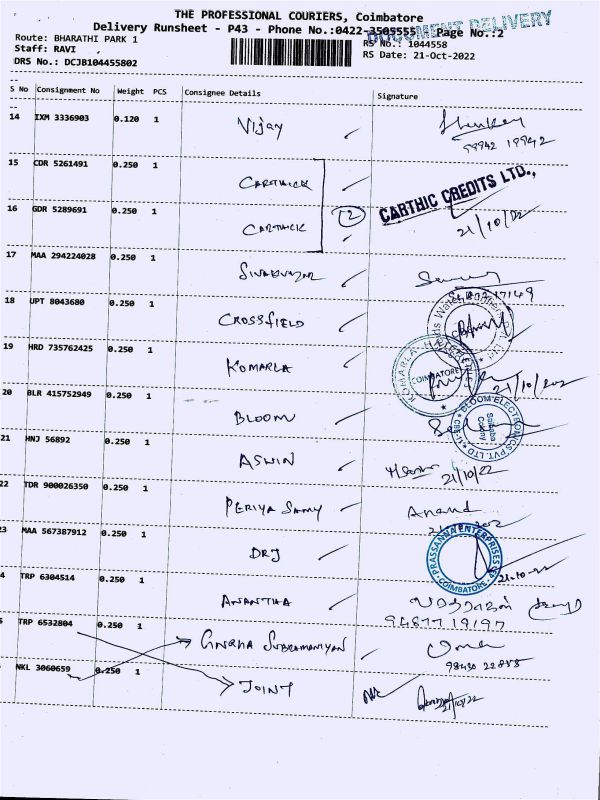 THE PROFESSIONAL COURIERS, Coimbatore
Delivery Runsheet - P43 - Phone No.:0422-3505555 Page No.:2
DOCUMENT DELIVERY
Route: BHARATHI PARK 1
RS No.: 1044558
Staff: RAVI
RS Date: 21-Oct-2022
DRS No.: DCJB104455802
S No Consignment No Weight PCS Consignee Details Signature
14 IXM 3336903 0.120 1 Vijay
99942 19942
15 CDR 5261491 0.250 1 CARTHICK
CARTHIC CREDITS LTD.,
16 GDR 5289691 0.250 1 CARTHICK 2
21/10/22
17 MAA 294224028 0.250 1 SIVAKUMAR
18 UPT 8043680 0.250 1 CROSSFIELD
19 HRD 735762425 0.250 1 KOMARLA
COIMBATORE
21/10/202
20 BLR 415752949 0.250 1 BLOOM
BLOOM ELECTRONICS PVT. LTD
Saibaba Colony
CBE-11
21 HNJ 56892 0.250 1 ASWIN
21/10/22
22 TDR 900026350 0.250 1 PERIYA SAMY Anand
23 MAA 567387912 0.250 1 DRJ
PRASSANNA ENTERPRISES
COIMBATORE
21-10-22
4 TRP 6304514 0.250 1 ANANTHA
94877 19197
5 TRP 6532804 0.250 1 GNANA SUBRAMANIYAN Uma
98430 22858
NKL 3060659 0.250 1 JOINT
21/10/22